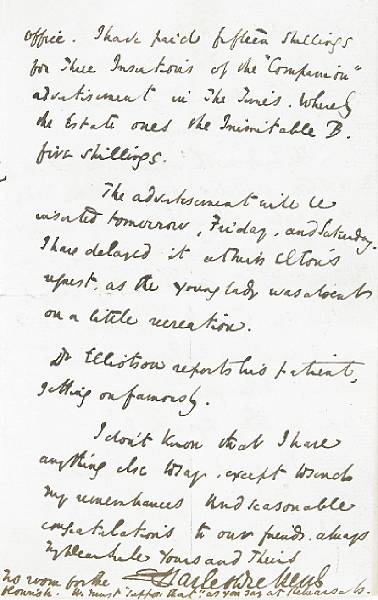 office. I have paid fifteen shillings
for Three Insertions of the "Companion"
advertisement in The Times. Whereby
the Estate owes the Inimitable B.
five shillings.
The advertisement will be
inserted tomorrow, Friday, and Saturday.
I have delayed it at Miss Elton's
request, as the young lady was absent
on a little recreation.
Dr Elliotson reports his patient,
getting on famously.
I don't know that I have
anything else to say, except to send
my remembrances and seasonable
congratulations to our friends. always
My Dear Yours and Theirs
Charles Dickens
No room for the
flourish. We must "suppose that" as you say at Rehearsals.